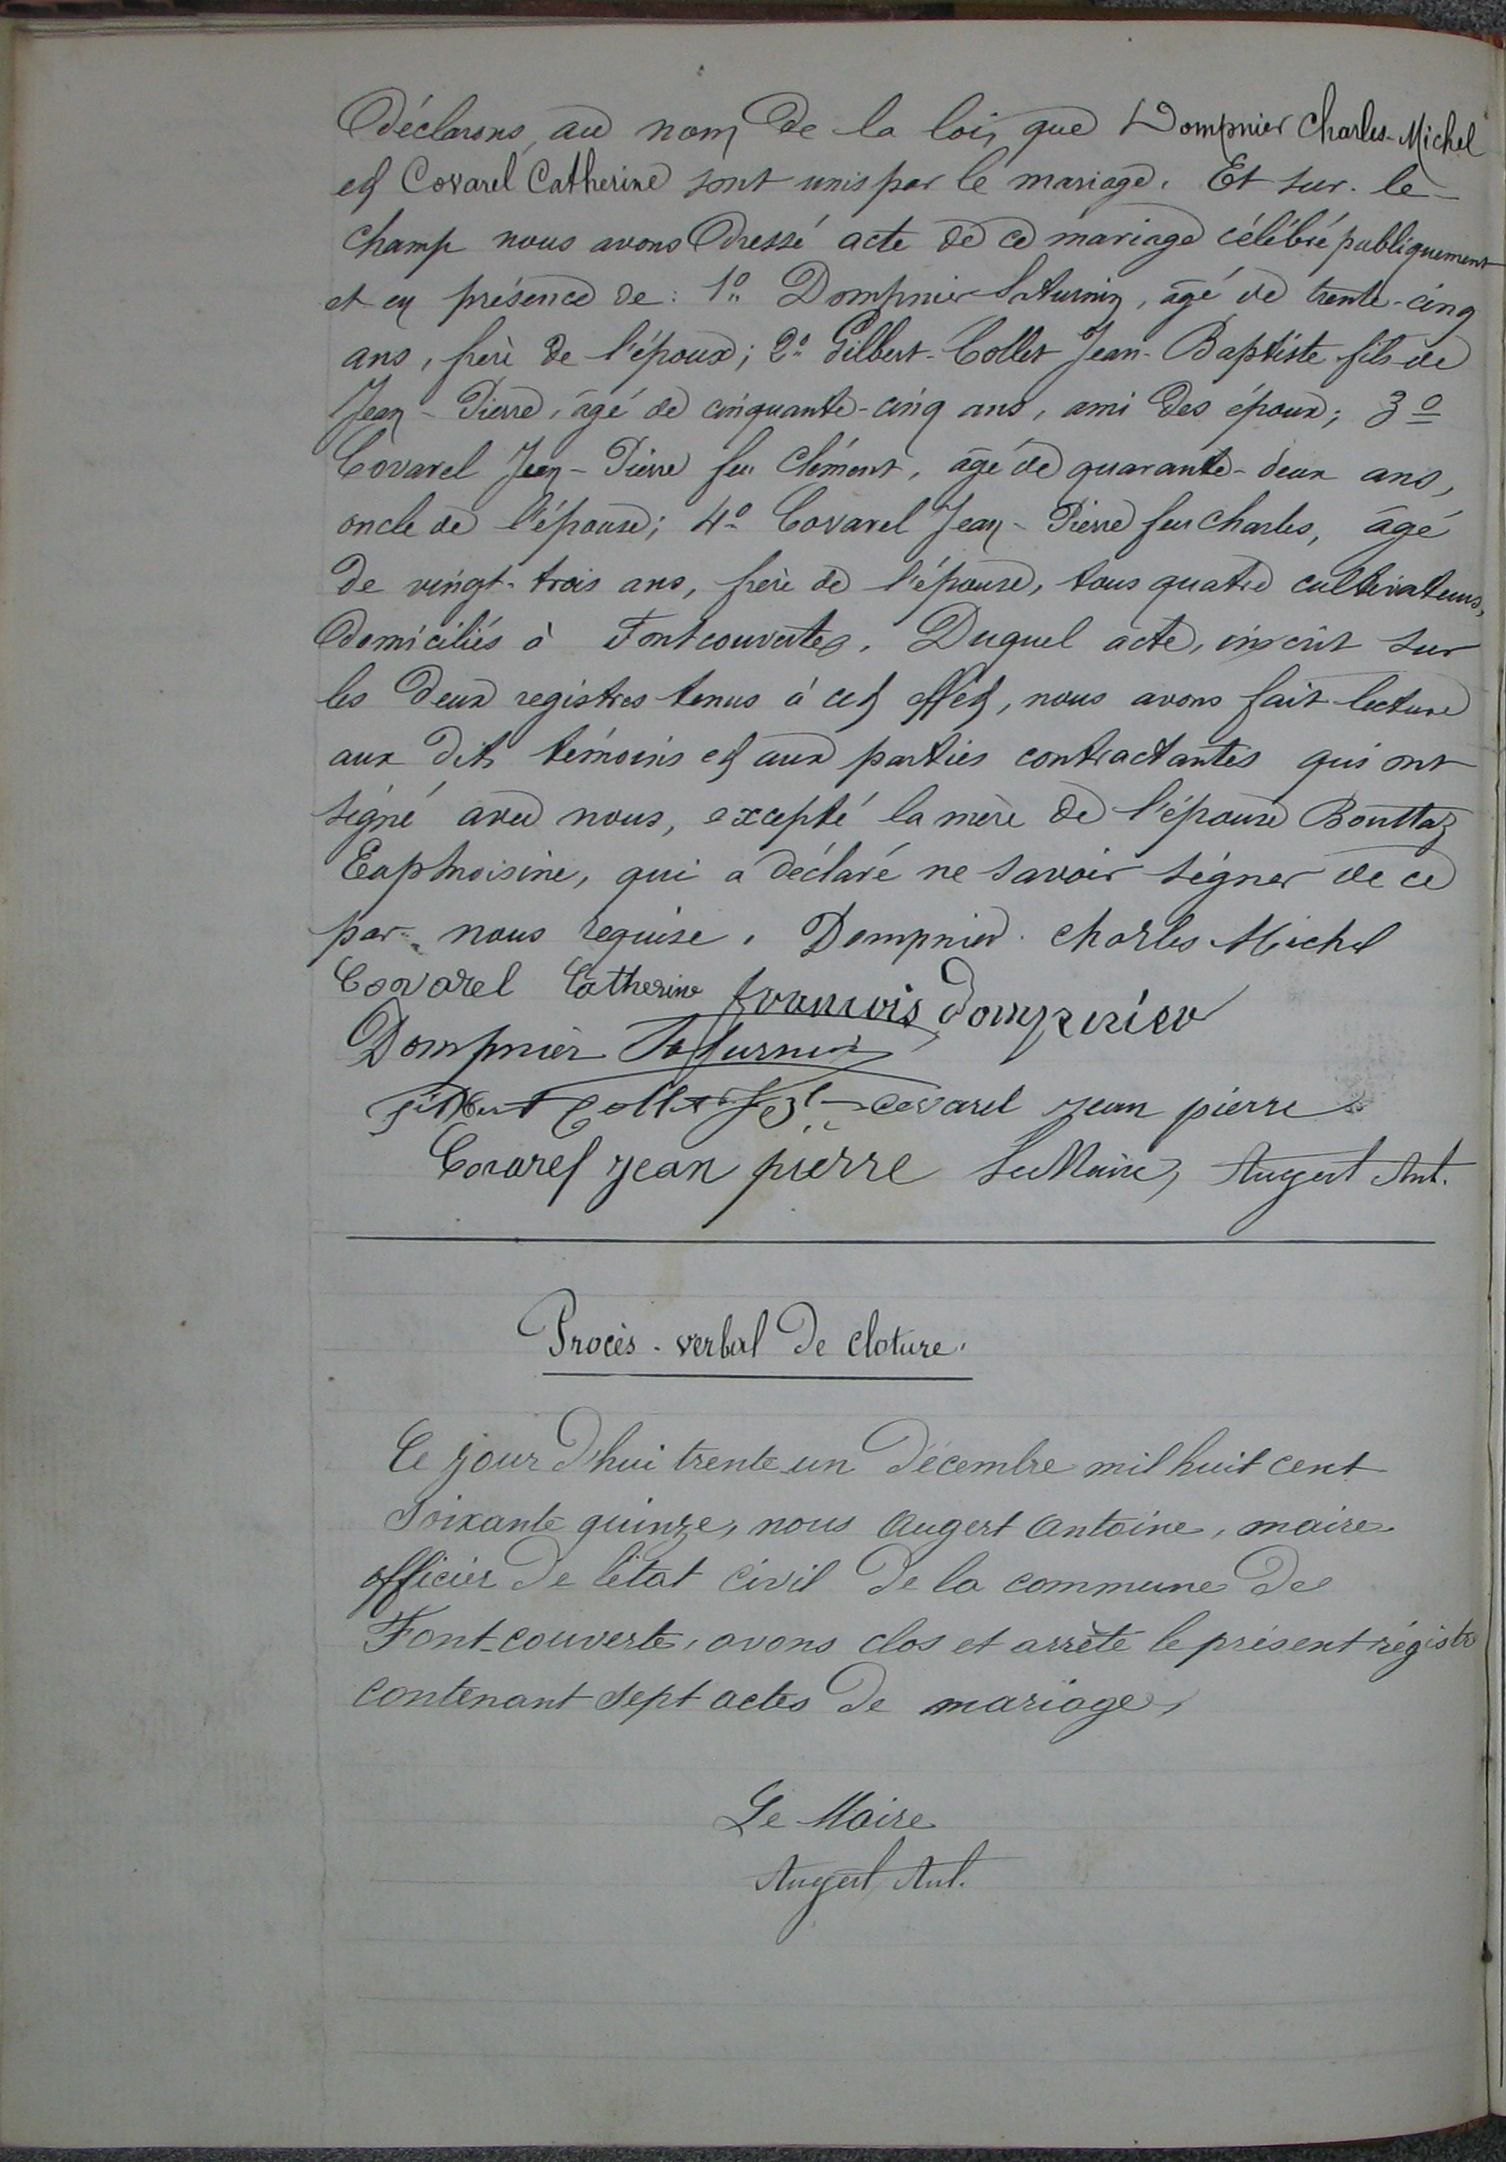 Déclarons, au nom de la loi, que Dompnier Charles-Michel
et Covarel Catherine sont unis par le mariage. Et sur-le-
champ nous avons dressé acte de ce mariage célébré publiquement
et en présence de : 1° Dompnier Saturnin, âgé de trente-cinq
ans, frère de l'époux ; 2° Gilbert-Collet Jean-Baptiste fils de
Jean-Pierre, âgé de cinquante-cinq ans, ami des époux ; 3°
Covarel Jean-Pierre feu Clément, âgé de quarante-deux ans,
oncle de l'épouse ; 4° Covarel Jean-Pierre feu Charles, âgé
de vingt-trois ans, frère de l'épouse, tous quatre cultivateurs,
domiciliés à Fontcouverte. Duquel acte, inscrit sur
les deux registres tenus à cet effet, nous avons fait lecture
aux dits témoins et aux parties contractantes qui ont
signé avec nous, excepté la mère de l'épouse Bouttaz
Euphroisine, qui a déclaré ne savoir signer de ce
par nous requise. Dompnier Charles Michel
Covarel Catherine francois dompnier
Dompnier Saturnin
Gilbert Collet J B covarel jean pierre
Covarel jean pierre Le Maire, Augert Ant.
Procès-verbal de cloture.
Ce jour d'hui trente un décembre mil huit cent
soixante quinze, nous Augert Antoine, maire
officier de l'état civil de la commune de
Font-couverte, avons clos et arrêté le présent régistre
contenant sept actes de mariage,
Le Maire
Augert Ant.